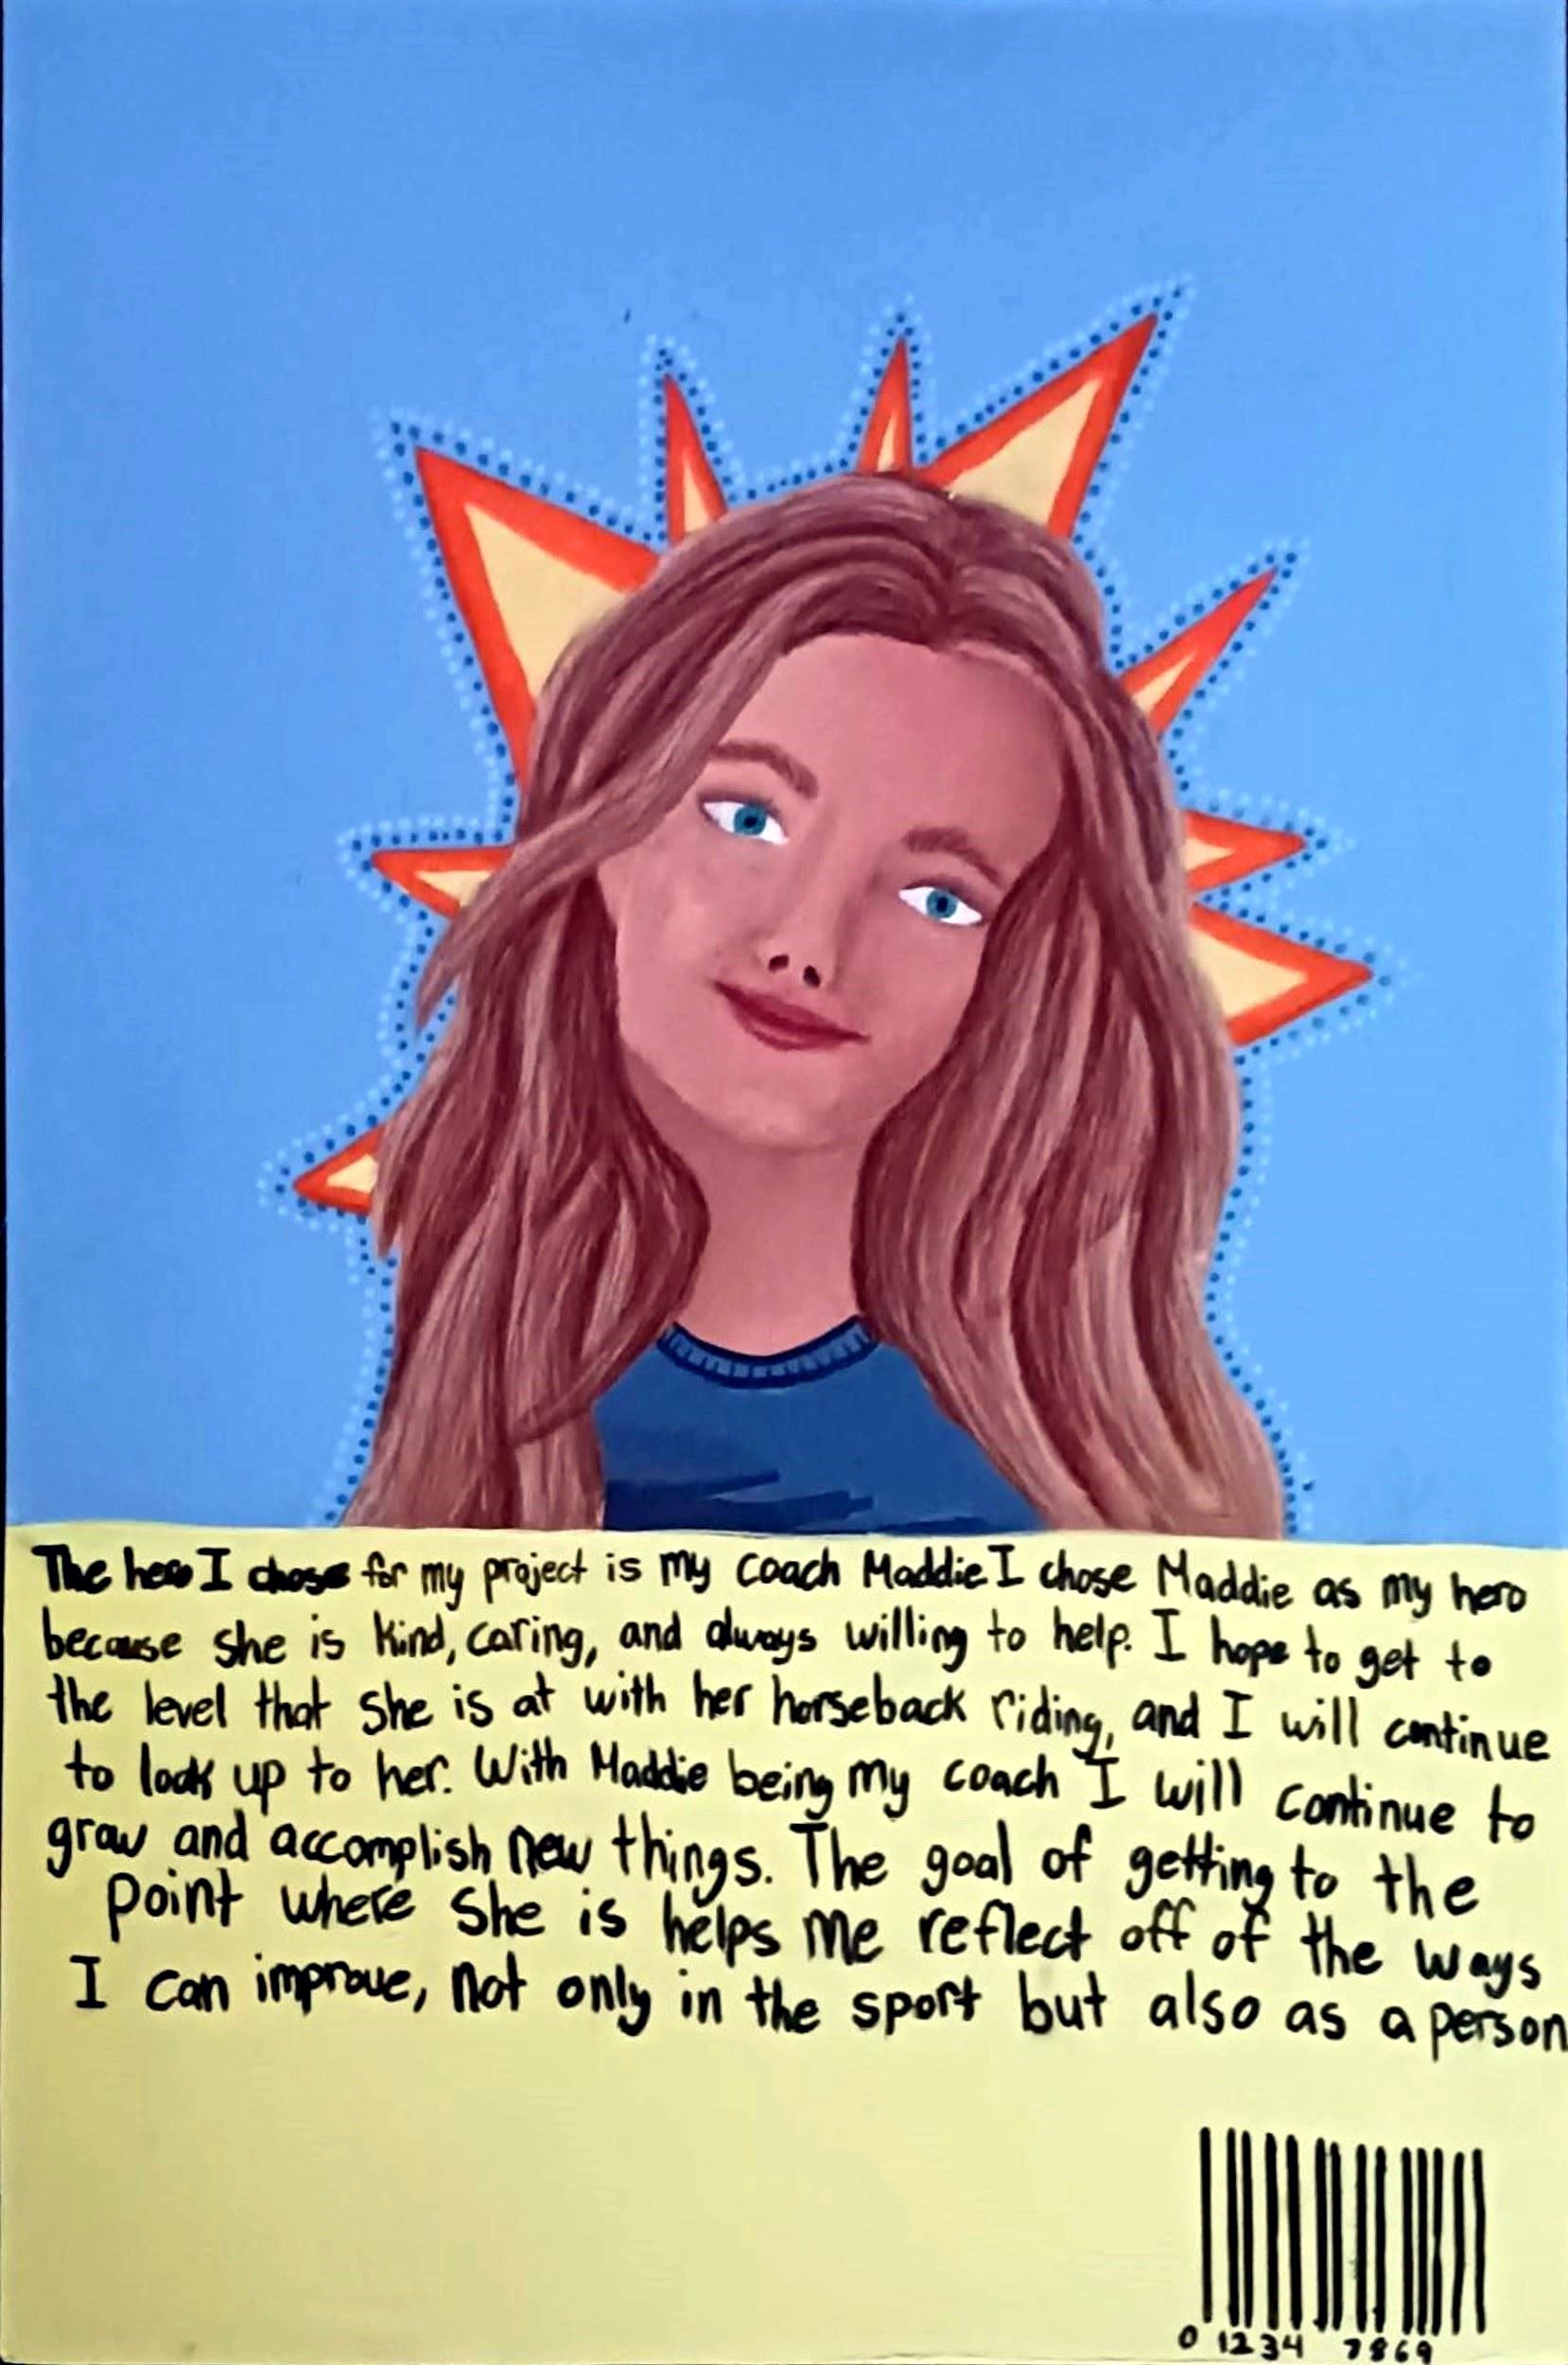 The hero I chose for my project is my coach Maddie I chose Maddie as my hero
because she is kind, caring, and always willing to help. I hope to get to
the level that she is at with her horseback riding, and I will continue
to look up to her. With Maddie being my coach I will continue to
grow and accomplish new things. The goal of getting to the
point where she is helps me reflect off of the ways
I can improve, not only in the sport but also as a person
0 1234 7869